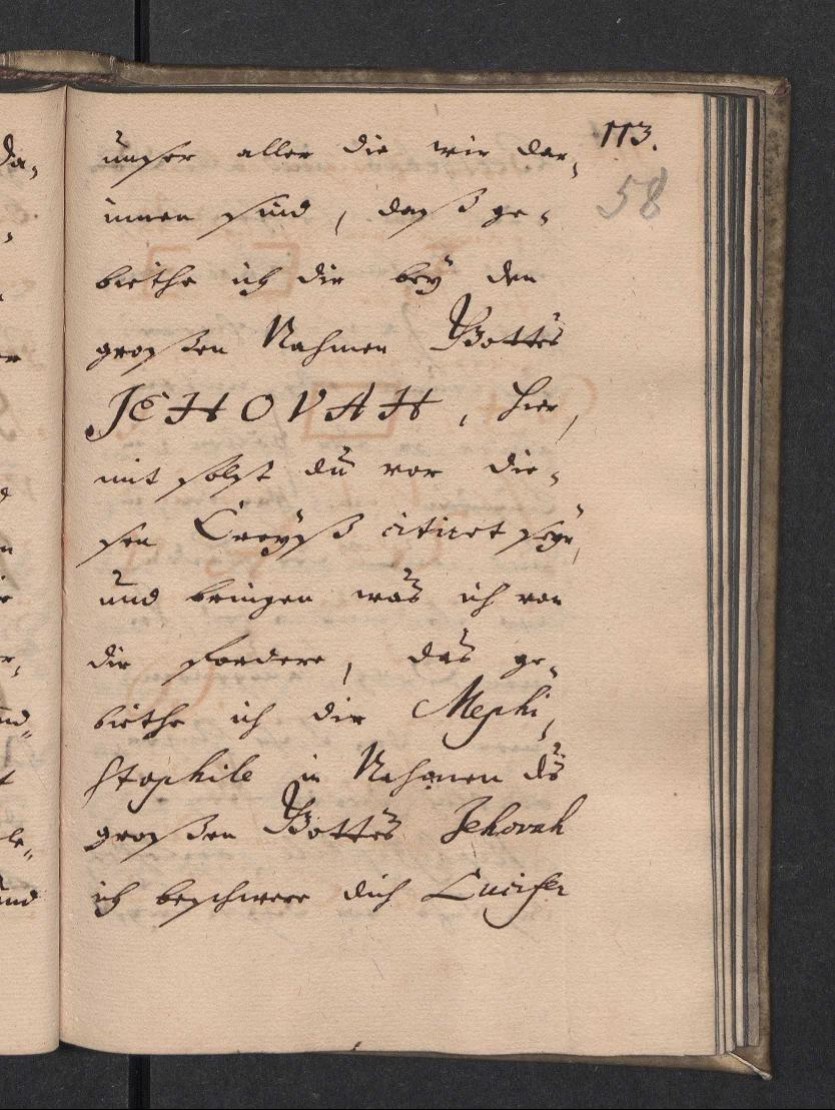 113.
58
unser aller die wir dar,
innen sind, daß ge,
biethe ich dir bey den
großen Nahmen Gottes
JEHOVAH, hier,
mit solst du vor die,
sen Creyß citiret seyn,
und bringen was ich von
dir fordere, das ge,
biethe ich dir Mephi,
stophile in Nahmen des
großen Gottes Jehovah
ich beschwere dich Lucifer
da,
le,,
und